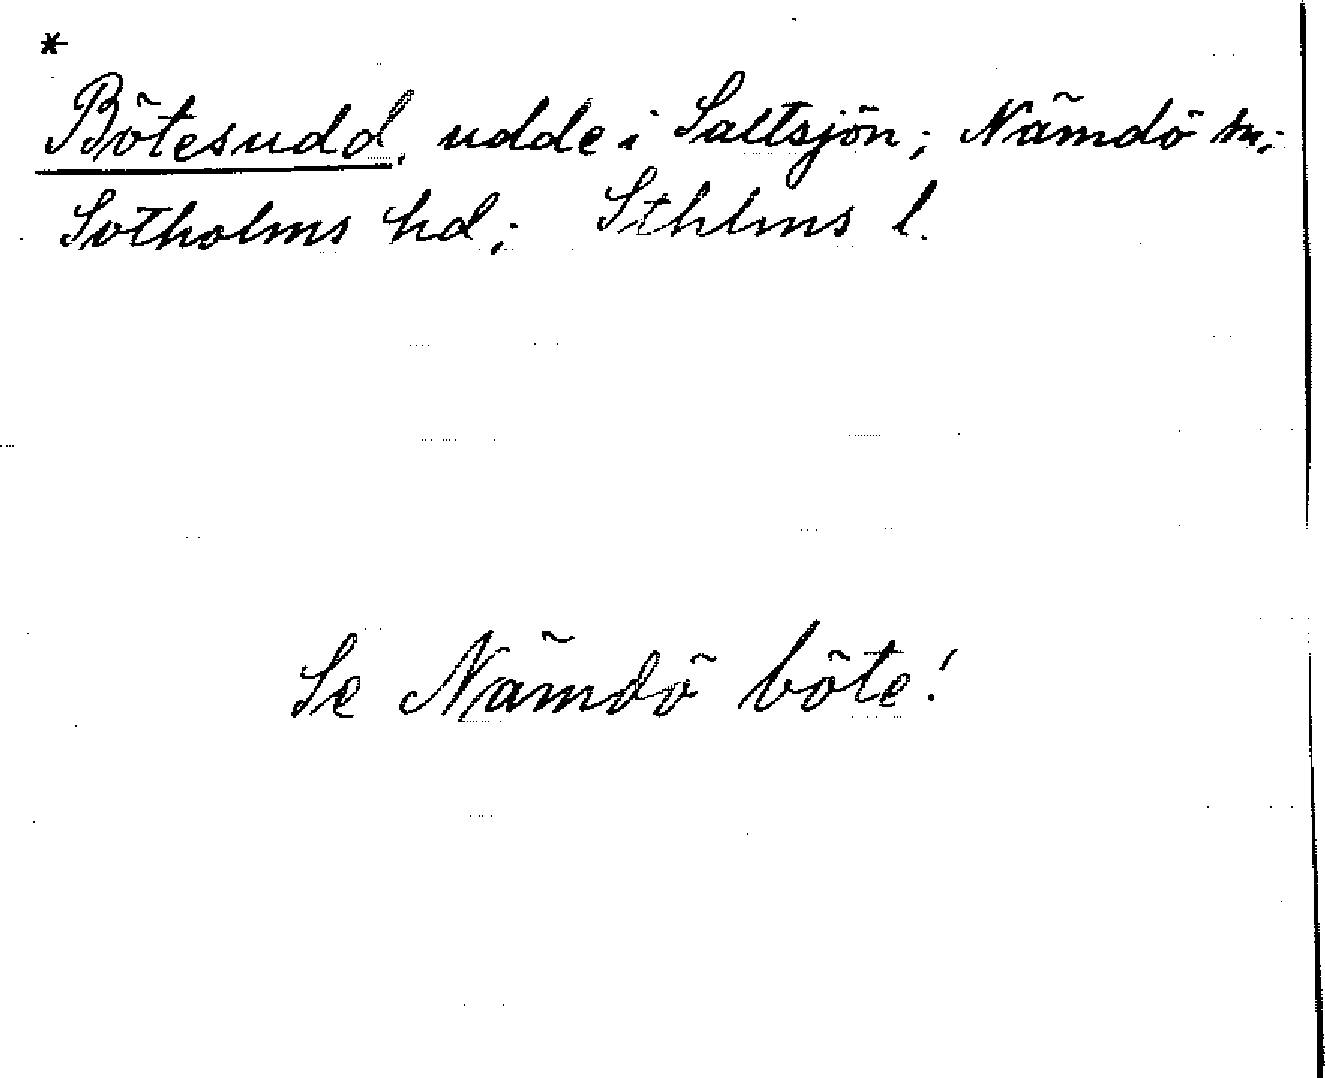 *
Bötesudd, udde i Saltsjön; Nämdö sn;
Sotholms hd; Sthlms l.
Se Nämdö böte!